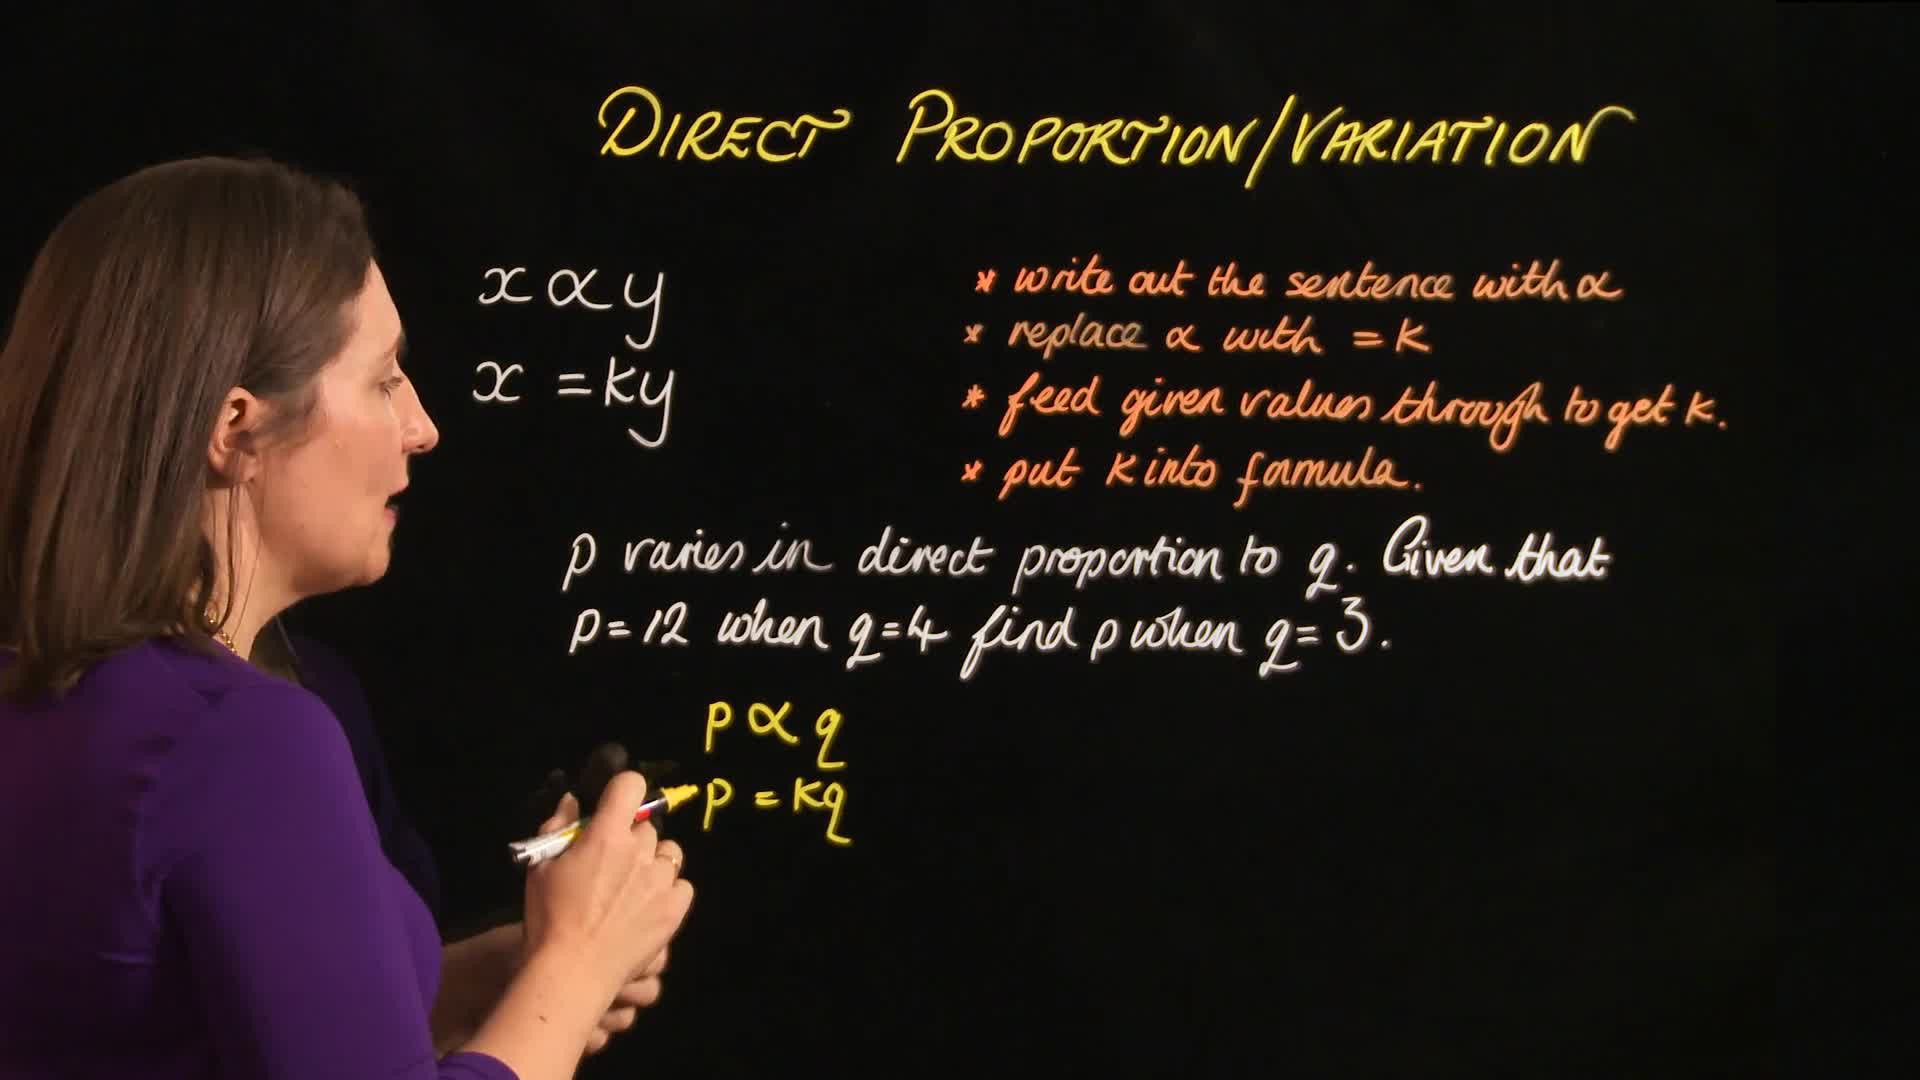 DIRECT PROPORTION/VARIATION
x ∝ y
x = ky
* write out the sentence with ∝
* replace ∝ with = k
* feed given values through to get k.
* put k into formula.
p varies in direct proportion to q. Given that
p=12 when q=4 find p when q=3.
p ∝ q
p = kq